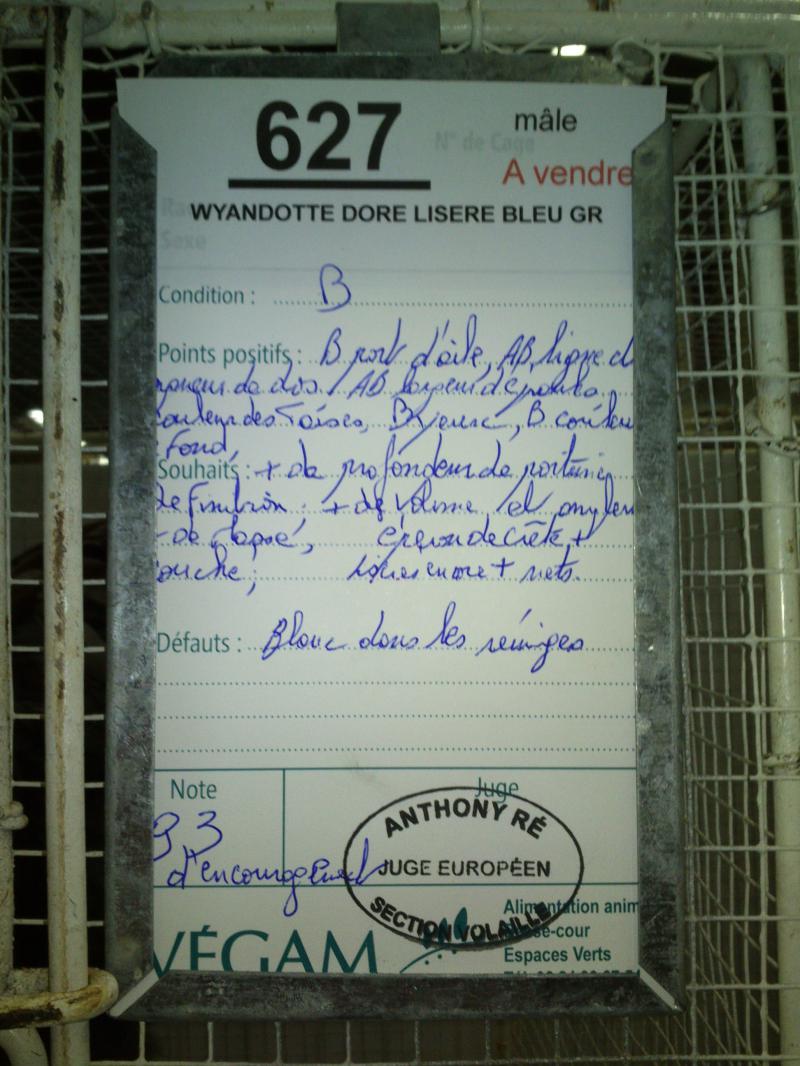 627
mâle
N° de Cage
A vendre
WYANDOTTE DORE LISERE BLEU GR
Sexe
Condition : B
Points positifs : B port d'aile, AB ligne d
de dos. AB largeur d'épaules
couleur des Tarses, B yeux, B couleu
Fond,
Souhaits : + de profondeur de poitrine
de finition : + de volume et ampleu
de
éperon de crête +
encore + nets.
Défauts : Blanc dans les rémiges
Note
Juge
93
d'encouragement
ANTHONY RÉ
JUGE EUROPÉEN
SECTION VOLAILLE
VÉGAM
Alimentation anim
se-cour
Espaces Verts